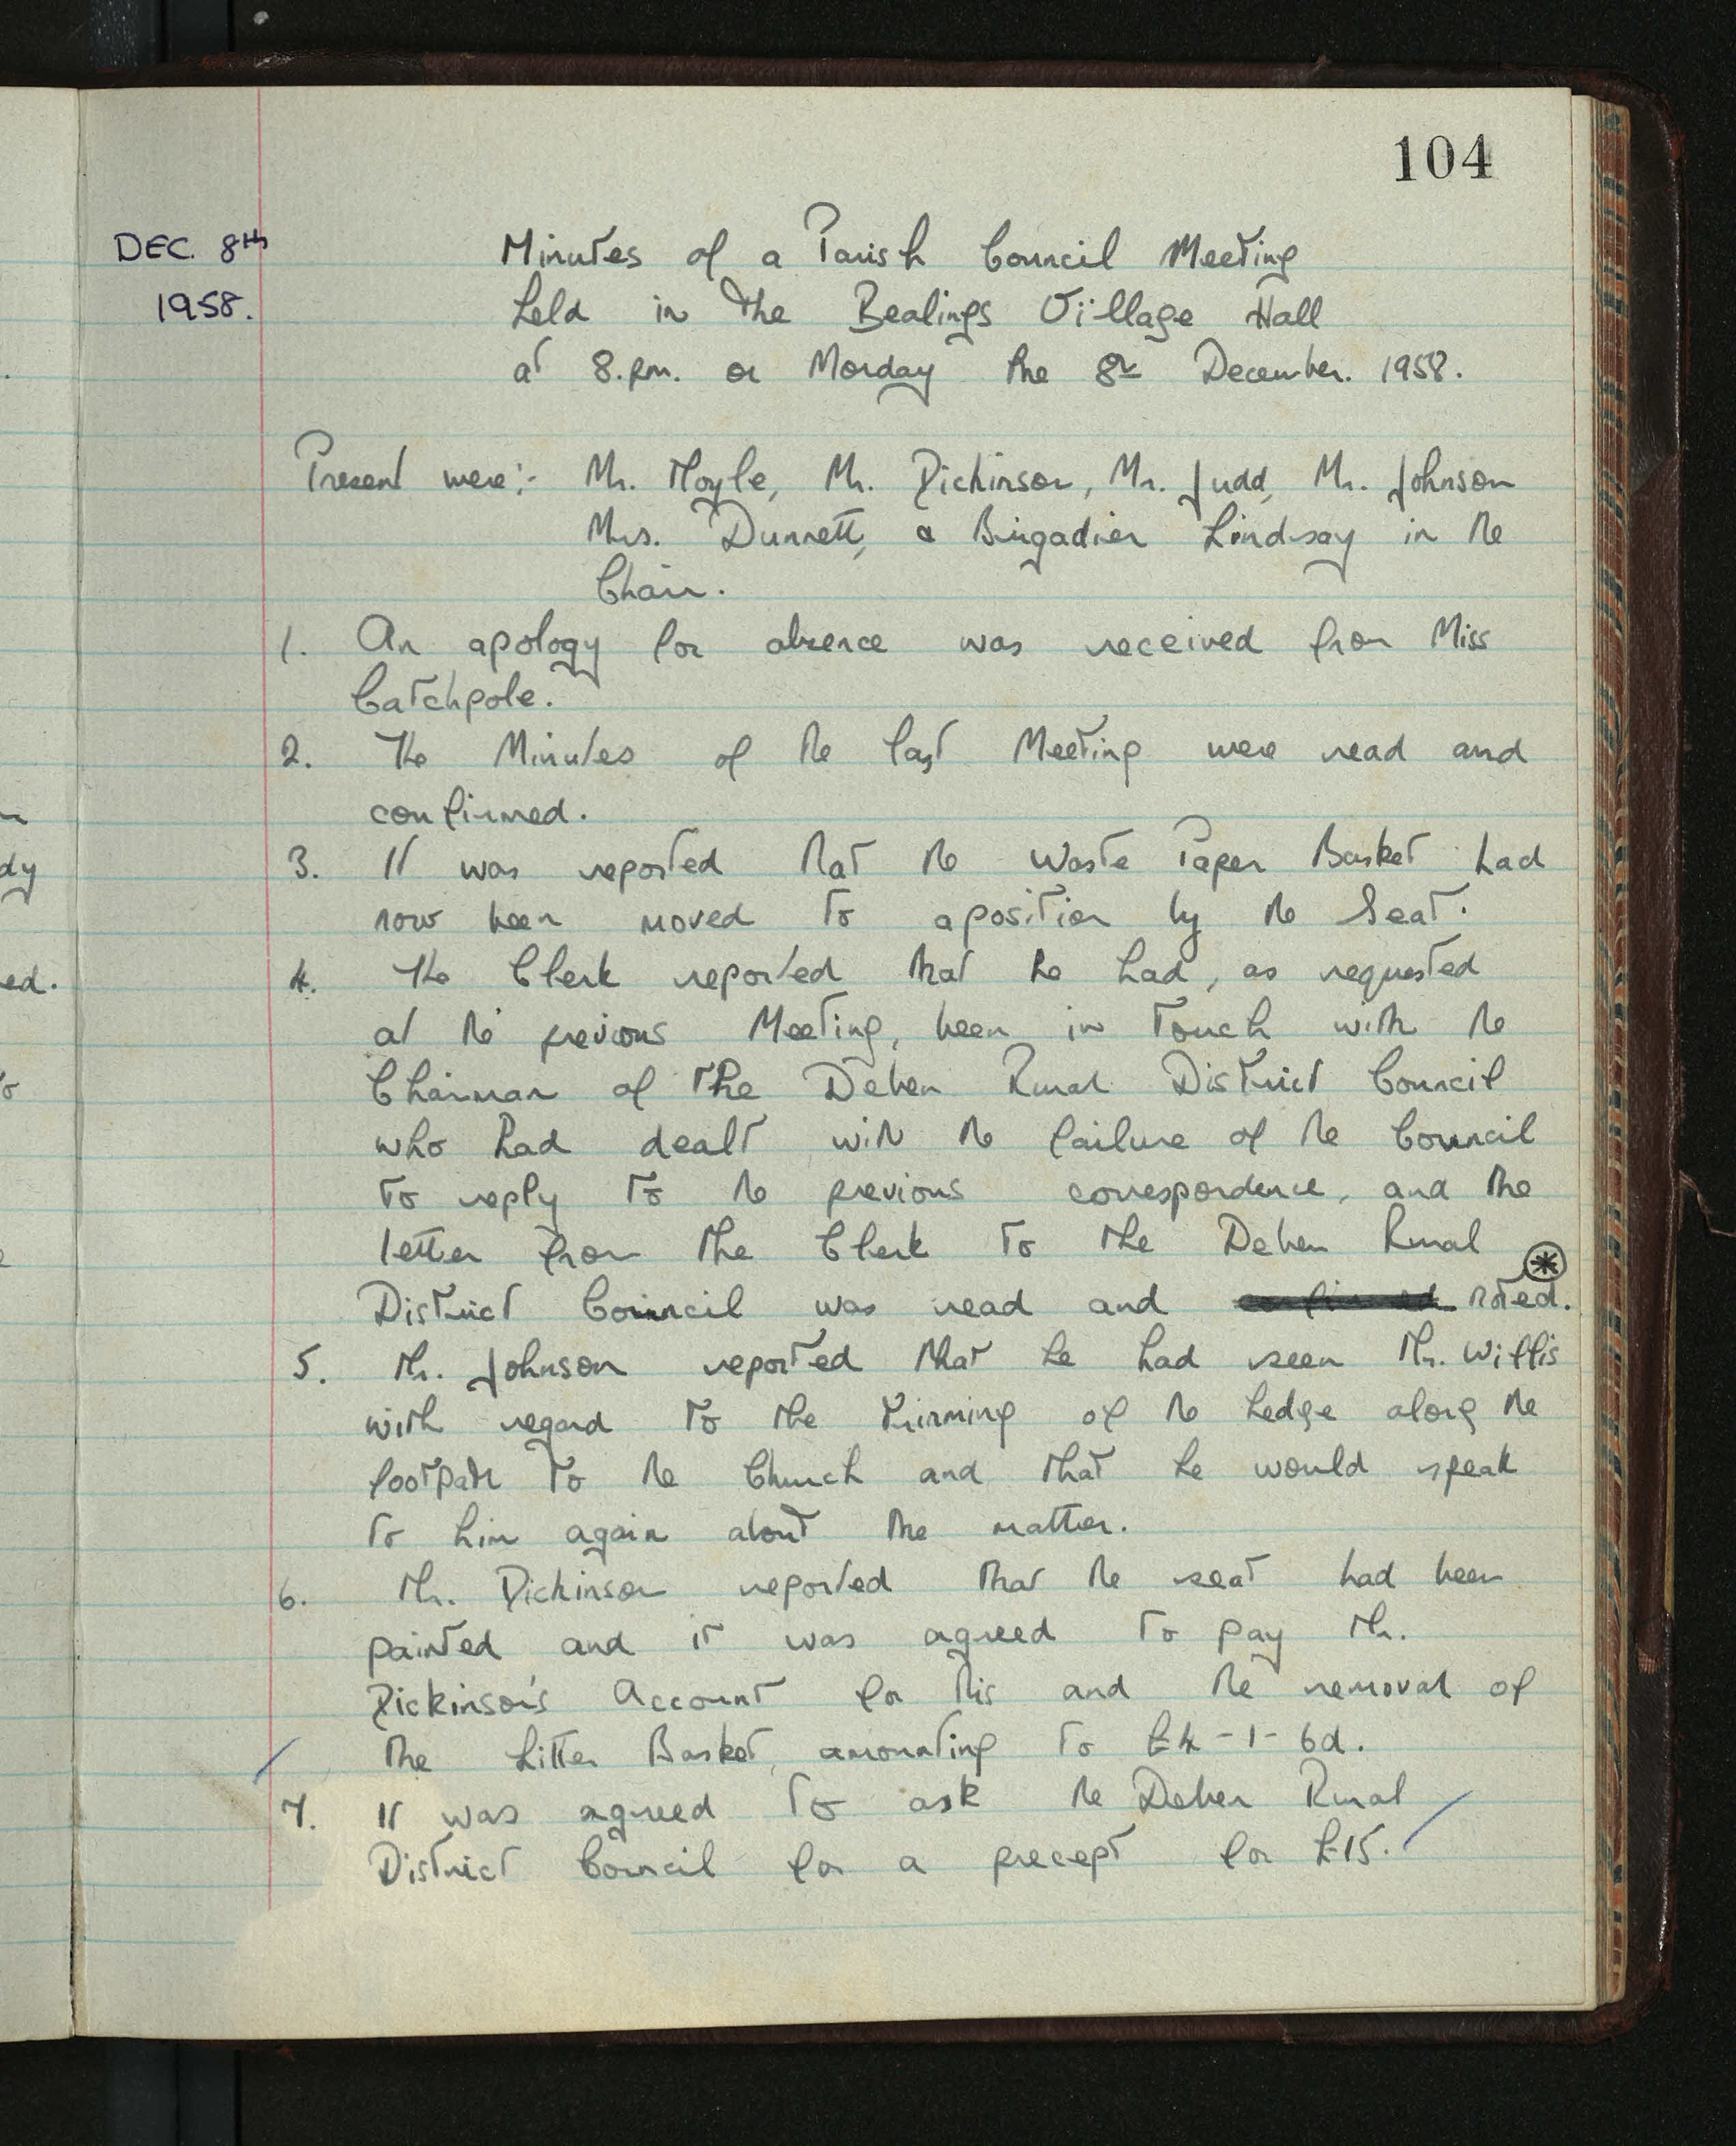 104
DEC. 8th
1958.
Minutes of a Parish Council Meeting
held in the Bealings Village Hall
at 8.pm. on Monday the 8th December. 1958.
Present were:- Mr. Moyle, Mr. Dickinson, Mr. Judd, Mr. Johnson
Mrs. Dunnett, & Brigadier Lindsay in the
Chair.
1. An apology for absence was received from Miss
Catchpole.
2. The Minutes of the last Meeting were read and
confirmed.
3. It was reported that the Waste Paper Basket had
now been moved to a position by the Seat.
4. The Clerk reported that he had, as requested
at the previous Meeting, been in touch with the
Chairman of the Deben Rural District Council
who had dealt with the failure of the Council
to reply to the previous correspondence, and the
letter from the Clerk to the Deben Rural
District Council was read and confirmed noted. *
5. Mr. Johnson reported that he had seen Mr. Willis
with regard to the trimming of the hedge along the
footpath to the Church and that he would speak
to him again about the matter.
6. Mr. Dickinson reported that the seat had been
painted and it was agreed to pay Mr.
Dickinson's Account for this and the removal of
the Litter Basket, amounting to £4-1-6d.
7. It was agreed to ask the Deben Rural
District Council for a precept for £15.
dy
ed.